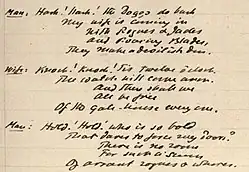 Man: Hark! Hark! The Doggs do bark
My wife is coming in
With Rogues & Jades
and Roaring Blades,
They make a devilish din.
Wife: Knock! Knock! 'Tis Twelve o'clock
The Watch will come anon.
And then shall we
All be free
Of the gate-house every one.
Man: Hold! Hold! who is so bold
That dares to force my Doors?
There is no room
For such a Scum
Of arrant rogues & whores.